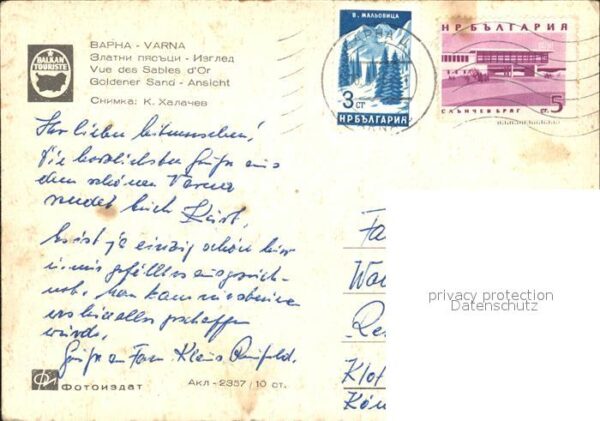 BALKAN
TOURISTE
ВАРНА - VARNA
Златни пясъци - Изглед
Vue des Sables d'Or
Goldener Sand - Ansicht
Снимка: К. Халачев
В. МАЛЬОВИЦА
3 СТ
НР БЪЛГАРИЯ
НР БЪЛГАРИЯ
СЛЪНЧЕВ БРЯГ СТ. 5
VARNA
Ihr lieben
Die herzlichsten Grüße aus
dem schönen Varna
sendet Euch Kurt,
Es ist ja einzig schön hier
u. mir gefällt es ausgezeich-
net. Man kann
wie hier alles geschaffen
wurde.
Grüße an Fam Klaus
Fa
Wa
Re
Klo
Kön
privacy protection
Datenschutz
Фотоиздат
Акл - 2357 / 10 ст.